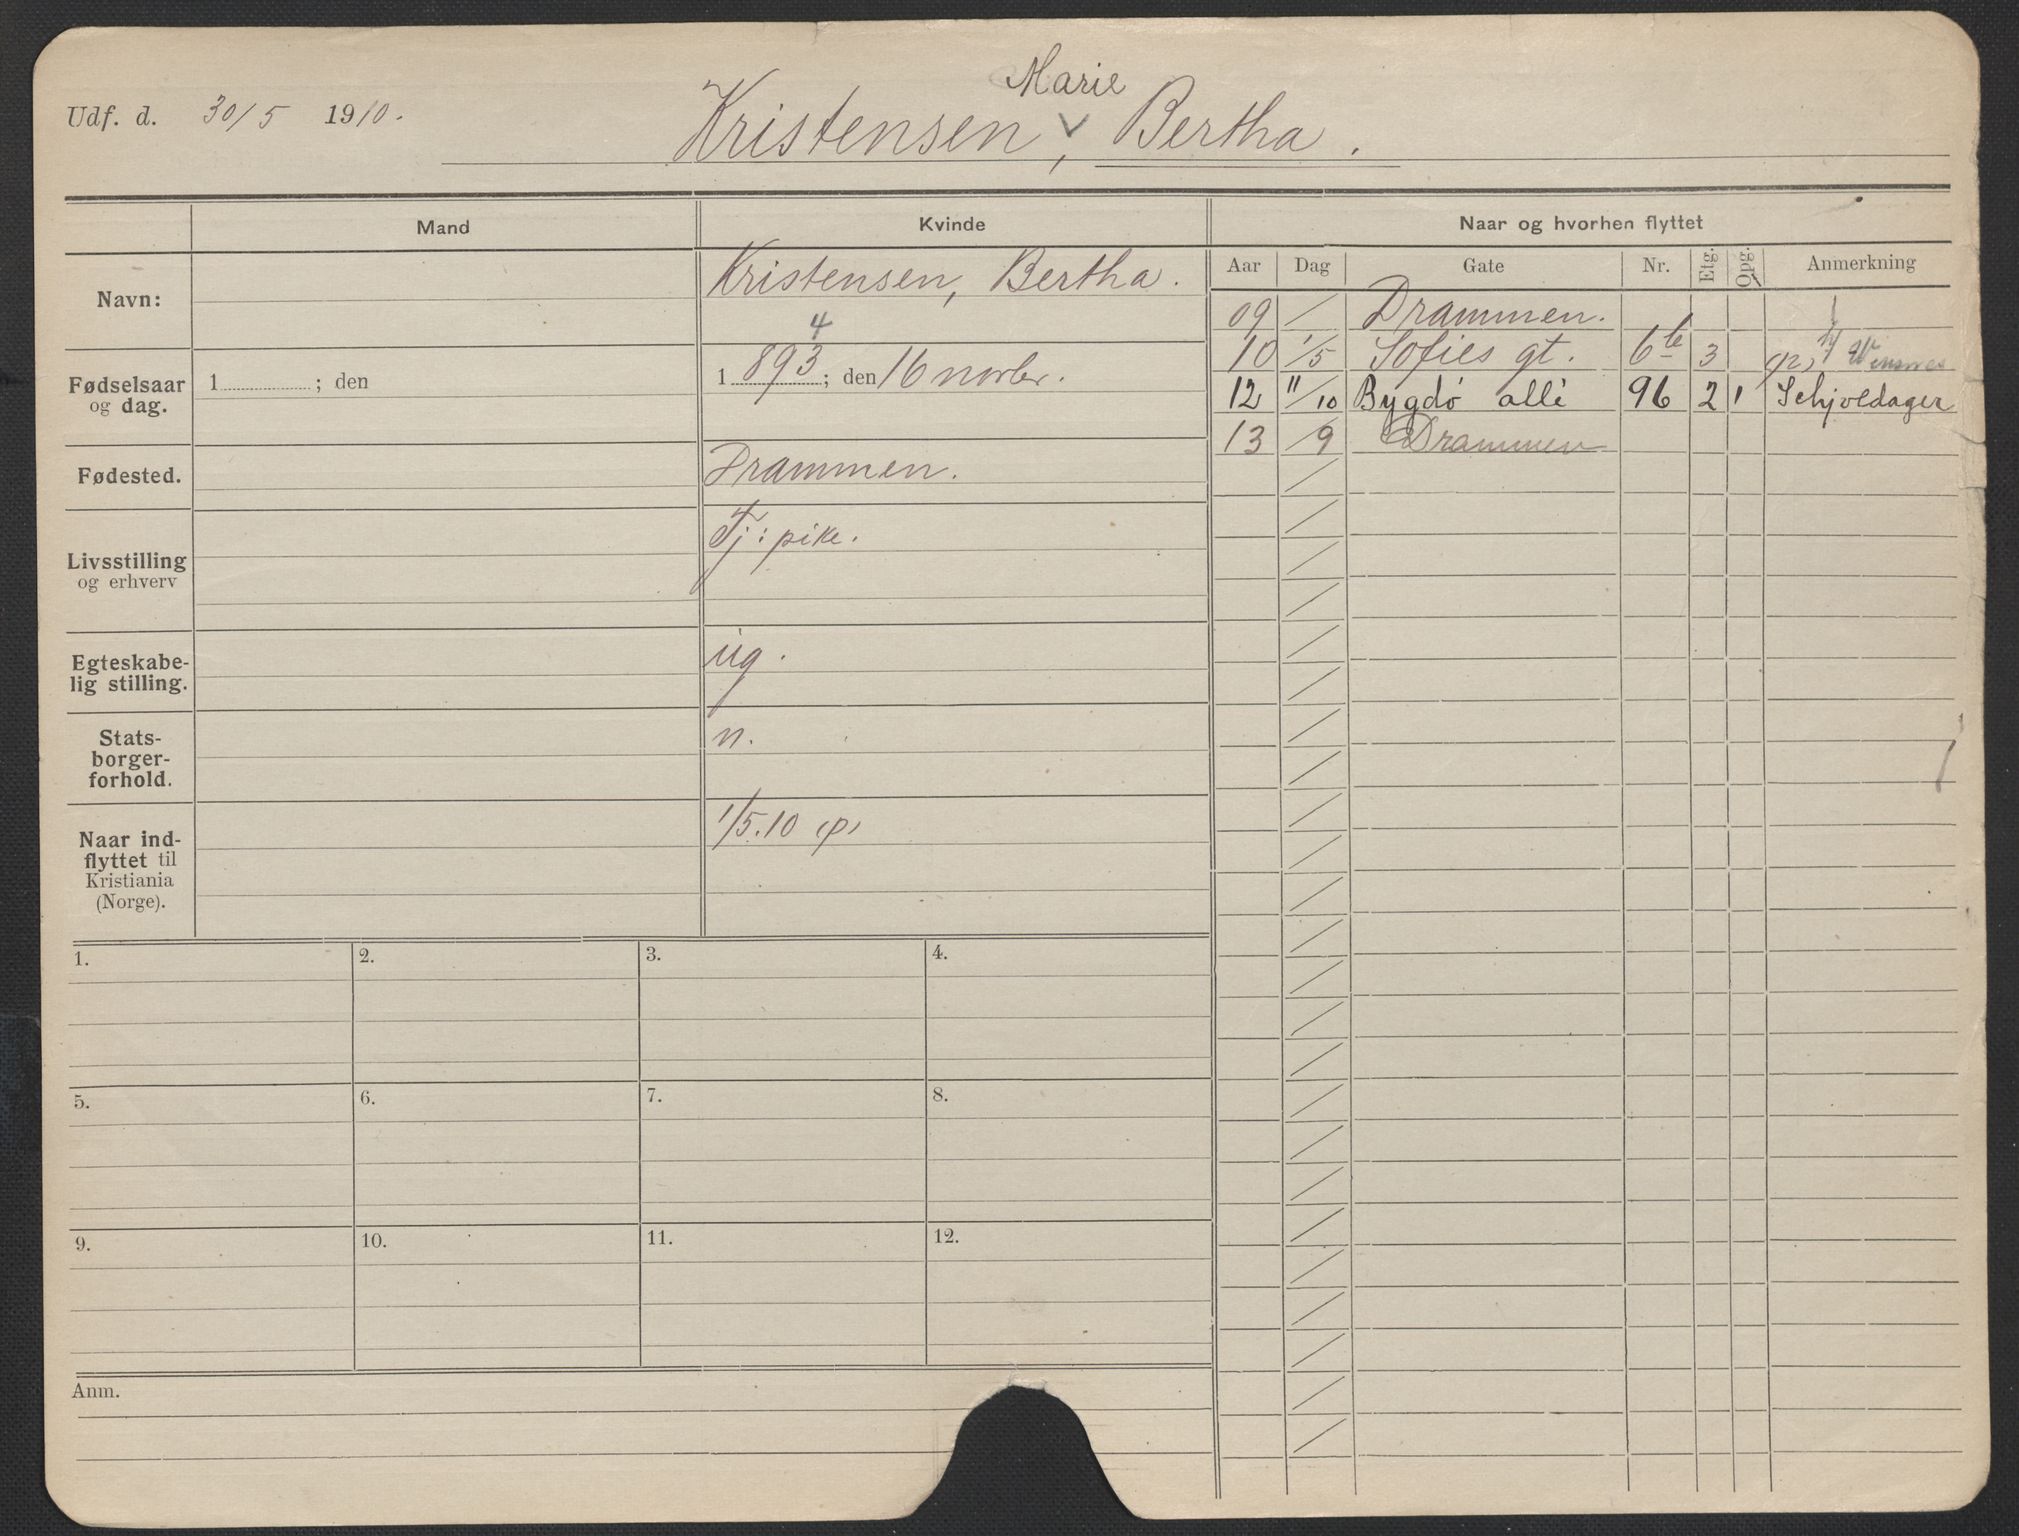 Udf. d. 30/5 1910.
Marie
Kristensen, Bertha.
Mand Kvinde Naar og hvorhen flyttet
Aar Dag Gate Nr. Etg. Opg. Anmerkning
Navn: Kristensen, Bertha.
09 / Drammen.
10 1/5 Sofies gt. 6 b 3 Winsnes
12 11/10 Bygdö allé 96 2 1 Schjoldager
13 /9 Drammen
4
Fødselsaar og dag. 1 ; den 1 893 ; den 16 novbr.
Fødested. Drammen.
Livsstilling og erhverv Tj: pike.
Egteskabe-
lig stilling. ug.
Stats-
borger-
forhold. n.
Naar ind-
flyttet til
Kristiania
(Norge). 1/5.10 (p)
1. 2. 3. 4.
5. 6. 7. 8.
9. 10. 11. 12.
Anm.